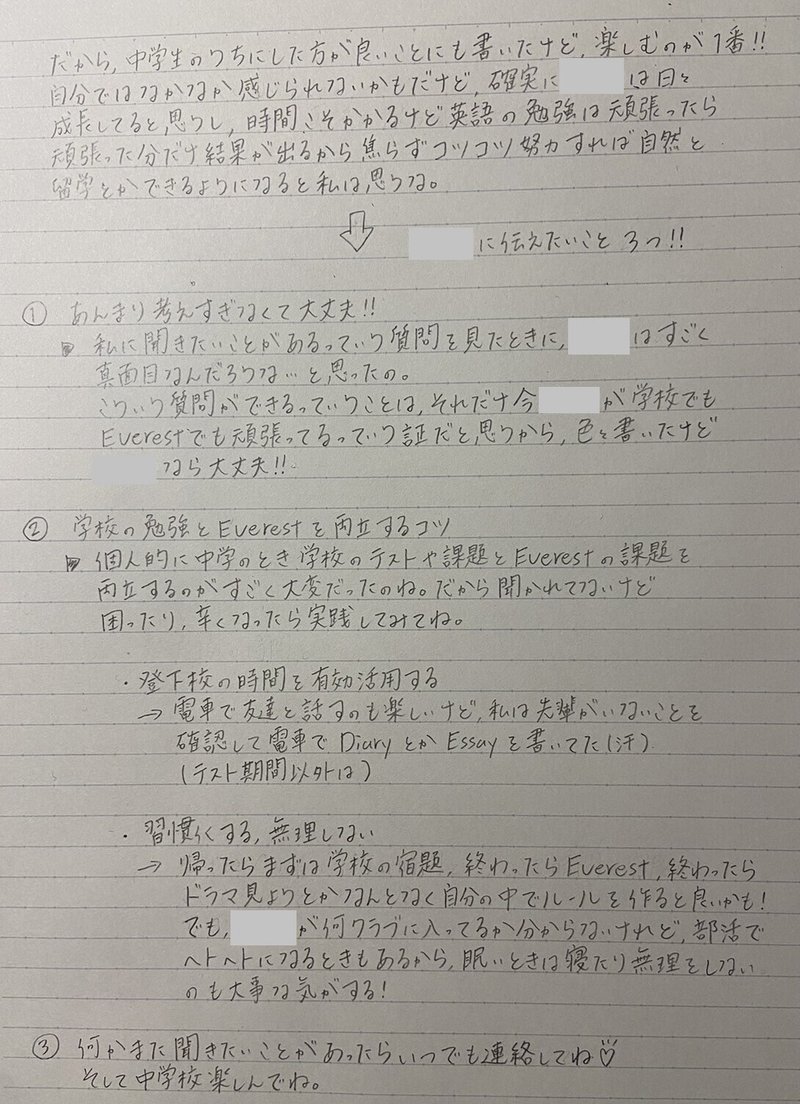 だから, 中学生のうちにした方が良いことにも書いたけど, 楽しむのが1番!!
自分ではなかなか感じられないかもだけど, 確実に は日々
成長してると思うし, 時間こそかかるけど英語の勉強は頑張ったら
頑張った分だけ結果が出るから焦らずコツコツ努力すれば自然と
留学とかできるようになると私は思うな。
⇩ に伝えたいこと 3つ!!
① あんまり考えすぎなくて大丈夫!!
私に聞きたいことがあるっていう質問を見たときに, はすごく
真面目なんだろうな… と思ったの。
こういう質問ができるっていうことは, それだけ今 が学校でも
Everestでも頑張ってるっていう証だと思うから, 色々書いたけど
なら大丈夫!!
② 学校の勉強とEverestを両立するコツ
個人的に中学のとき学校のテストや課題とEverestの課題を
両立するのがすごく大変だったのね。だから聞かれてないけど
困ったり, 辛くなったら実践してみてね。
・登下校の時間を有効活用する
→ 電車で友達と話すのも楽しいけど, 私は先輩がいないことを
確認して電車でDiaryとかEssayを書いてた(汗)
(テスト期間以外は)
・習慣化する, 無理しない
→ 帰ったらまずは学校の宿題, 終わったらEverest, 終わったら
ドラマ見よとかなんとなく自分の中でルールを作ると良いかも!
でも, が何クラブに入ってるか分からないけれど, 部活で
ヘトヘトになるときもあるから, 眠いときは寝たり無理をしない
のも大事な気がする!
③ 何かまた聞きたいことがあったらいつでも連絡してね♡
そして中学校楽しんでね。